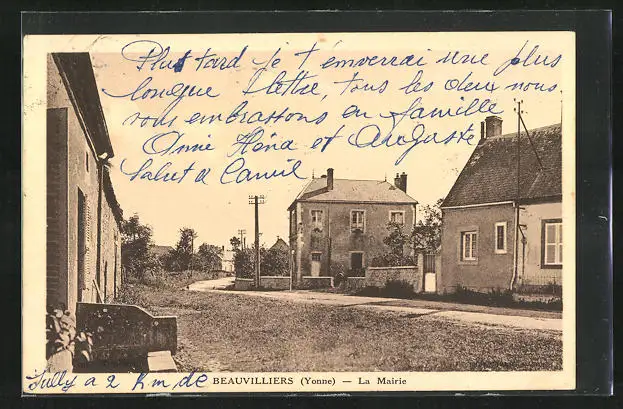 Plus tard je t'émverrai une plus
longue lettre, tous les deux nous
vous embrassons en famille
Onie Héna et Auguste
Salut a Camil
Jully a 2 Km de BEAUVILLIERS (Yonne) — La Mairie